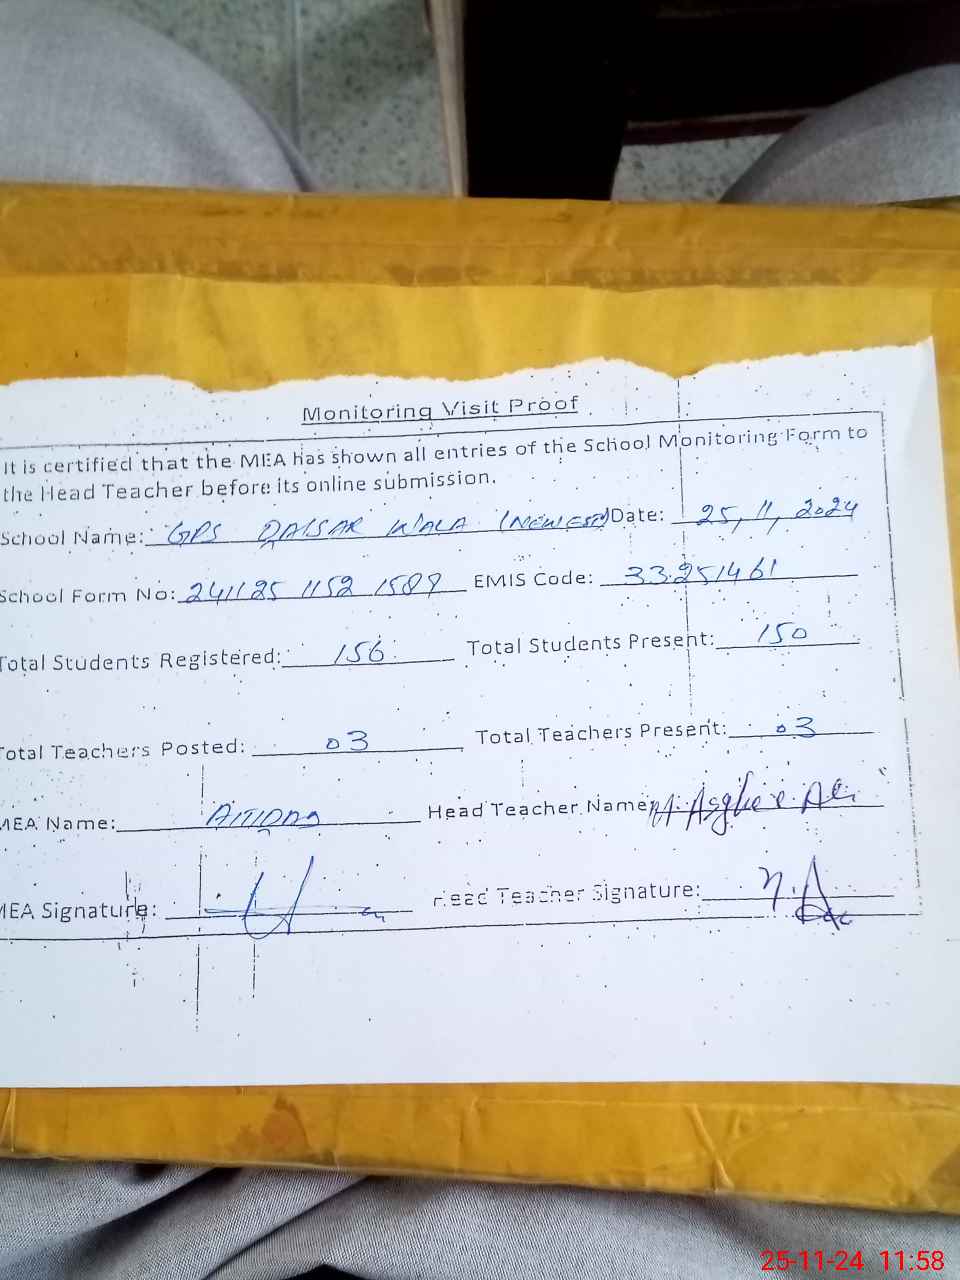 Monitoring Visit Proof
It is certified that the MEA has shown all entries of the School Monitoring Form to
the Head Teacher before its online submission.
School Name: GPS DAISAR WALA (NEWEST) Date: 25, 11, 2024
School Form No: 241125 1152 1589 EMIS Code: 33251461
Total Students Registered: 156 Total Students Present: 150
Total Teachers Posted: 03 Total Teachers Present: 03
MEA Name: Head Teacher Name: M. Asghar Ali
MEA Signature: Head Teacher Signature:
25-11-24 11:58